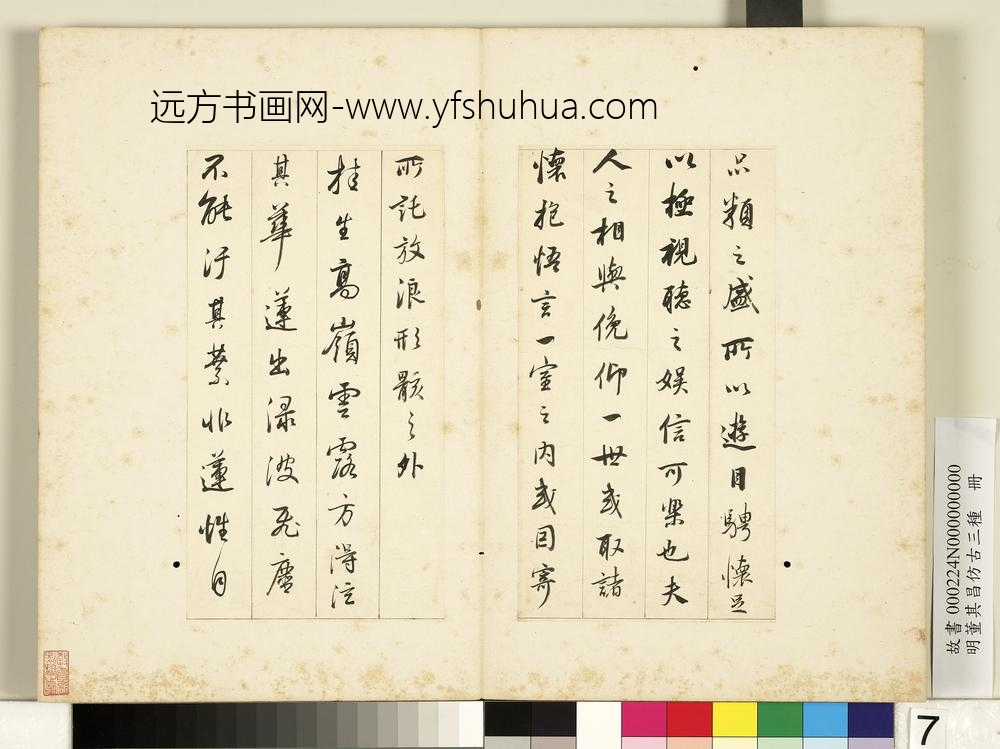 远方书画网-www.yfshuhua.com
品類之盛所以遊目騁懷足
以極視聽之娛信可樂也夫
人之相與俛仰一世或取諸
懷抱悟言一室之內或因寄
所託放浪形骸之外
桂生高嶺雲露方得泫
其華蓮出淥波飛塵
不能汙其葉非蓮性自
故書 000224N000000000
明董其昌仿古三種 冊
7